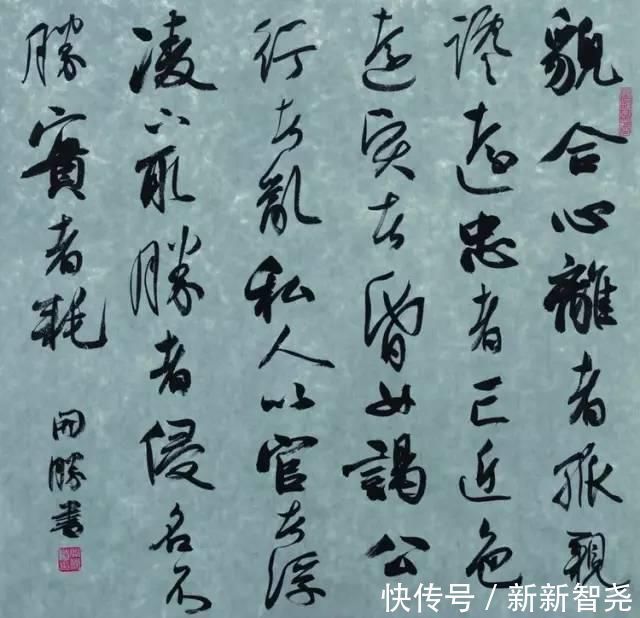 貌合心離者孤親
讒遠忠者亡近色
遠賢者昏女謁公
行者亂私人以官者浮
凌下取勝者侵名不
勝實者耗
開勝書
快传号 / 新新智尧